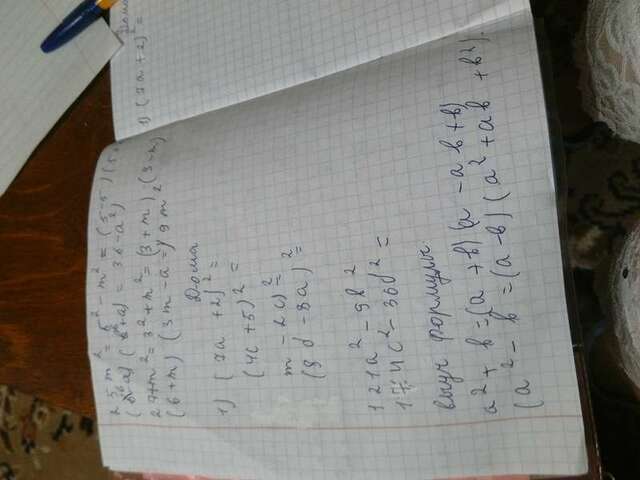 25m² = 5² - m² = (5-5)(5
(6-a)(6+a) = 36-a²)
27+m² = 3²+m² = (3+m)·(3-m)
(6+m)(3m-a=)9m²
Дома
1) (7a +2)² =
(4c+5)² =
m - 2c)² =
(8d -8a)² =
121a² - 9b²
1)4c² - 36d² =
выуч формулы
a² + b = (a +b)(a -a b+b)
(a² - b = (a-b)(a² +ab +b²).
Дома
1) (7a+2)² =